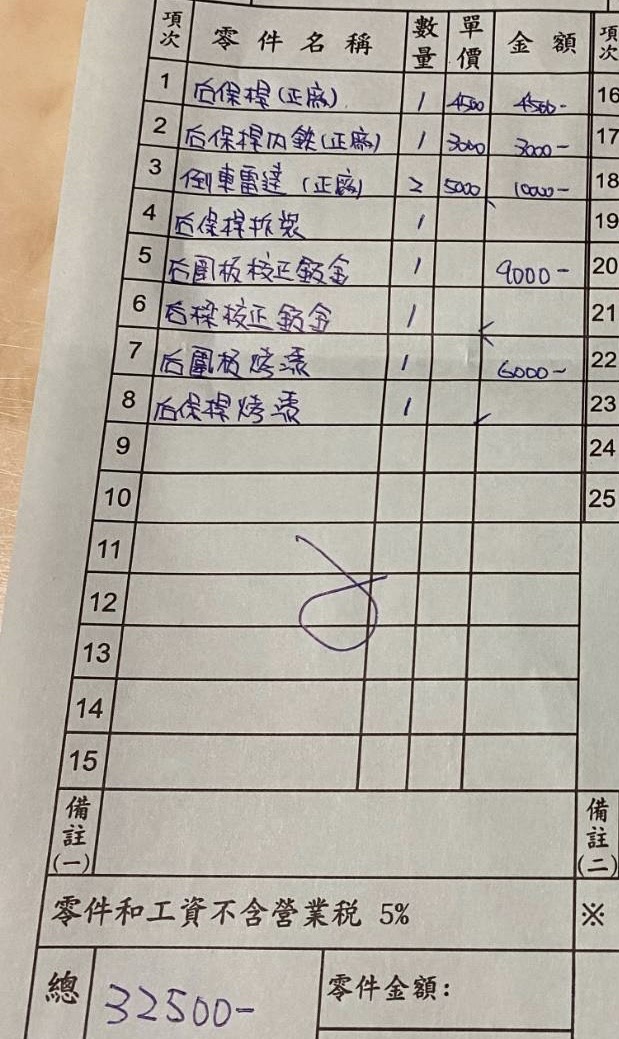 項次 零件名稱 數量 單價 金額 項次
1 后保桿(正廠) 1 4500 4500- 16
2 后保桿內鉄(正廠) 1 3000 3000- 17
3 倒車雷達(正廠) 2 5000 10000- 18
4 后保桿拆裝 1 19
5 后圍板校正鈑金 1 9000- 20
6 后樑校正鈑金 1 21
7 后圍板烤漆 1 6000- 22
8 后保桿烤漆 1 23
9 24
10 25
11
12
13
14
15
備註(一) 備註(二)
零件和工資不含營業稅 5% ※
總 32500- 零件金額: